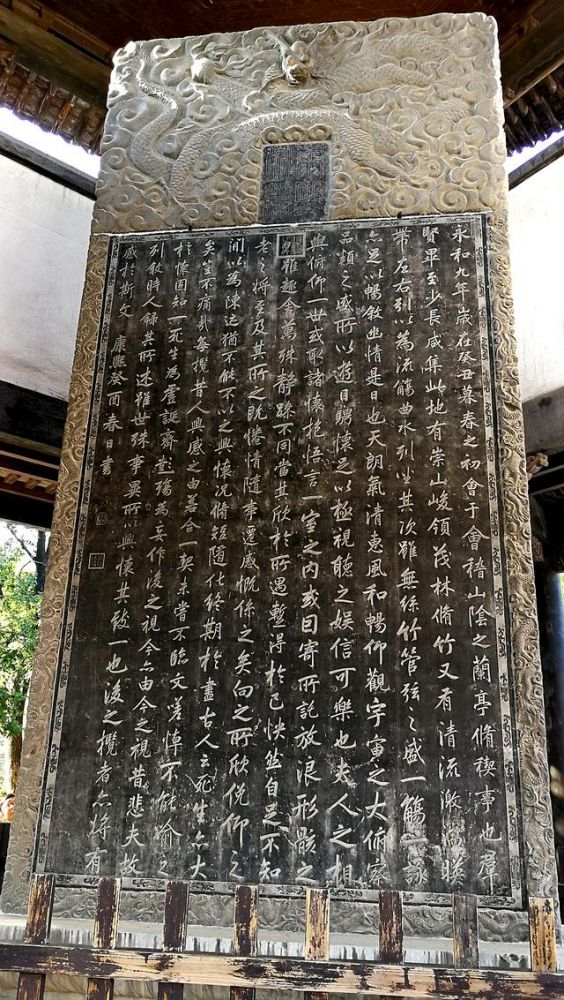 永和九年歲在癸丑暮春之初會于會稽山陰之蘭亭脩稧事也羣
賢畢至少長咸集此地有崇山峻領茂林脩竹又有清流激湍暎
帶左右引以為流觴曲水列坐其次雖無絲竹管弦之盛一觴一詠
亦足以暢敘幽情是日也天朗氣清惠風和暢仰觀宇宙之大俯察
品類之盛所以遊目騁懷足以極視聽之娛信可樂也夫人之相
與俯仰一世或取諸懷抱悟言一室之內或因寄所託放浪形骸之
外雖趣舍萬殊靜躁不同當其欣於所遇蹔得於己怏然自足不知
老之將至及其所之既惓情隨事遷感慨係之矣向之所欣俛仰之
間以為陳迹猶不能不以之興懷況脩短隨化終期於盡古人云死生亦大
矣豈不痛哉每攬昔人興感之由若合一契未嘗不臨文嗟悼不能喻之
於懷固知一死生為虛誕齊彭殤為妄作後之視今亦由今之視昔悲夫故
列敘時人錄其所述雖世殊事異所以興懷其致一也後之攬者亦將有
感於斯文 康熙癸酉春日書